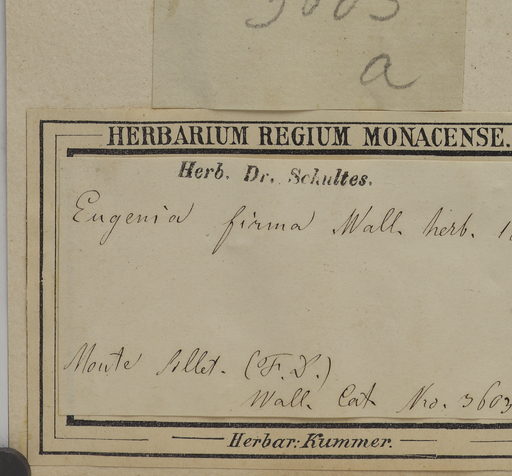 3603
a
HERBARIUM REGIUM MONACENSE.
Herb. Dr. Schultes.
Eugenia firma Wall. herb. 18
Monte Sillet. (F.D.)
Wall. Cat. No. 3603
Herbar: Kummer.